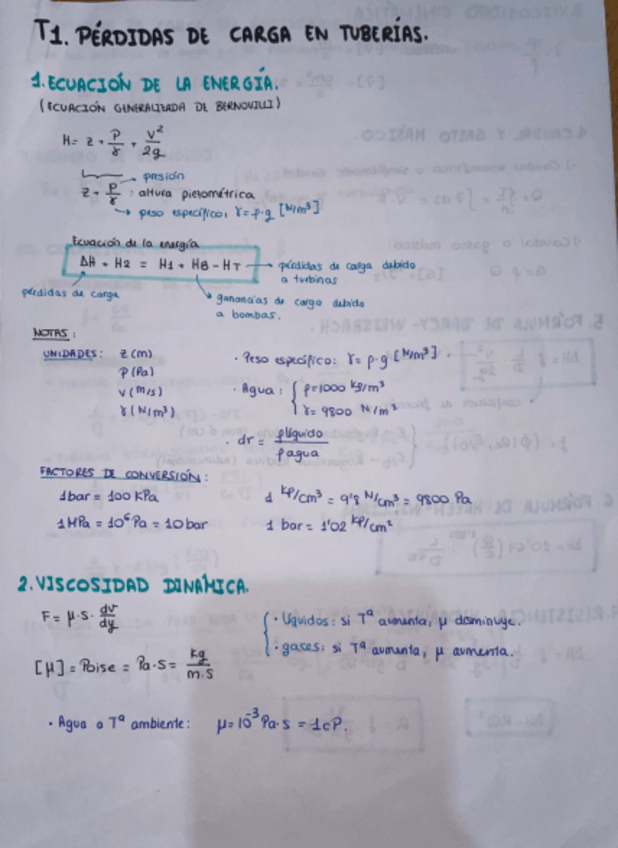 T1. PÉRDIDAS DE CARGA EN TUBERÍAS.
1. ECUACIÓN DE LA ENERGÍA.
(ECUACIÓN GENERALIZADA DE BERNOUILLI)
H = z + P/γ + v²/2g
presión
z + P/γ : altura piezométrica
peso específico, γ = ρ·g [N/m³]
Ecuación de la energía
ΔH + H2 = H1 + HB - HT → pérdidas de carga debido a turbinas
pérdidas de carga
ganancias de carga debido a bombas.
NOTAS:
UNIDADES: z (m)
P (Pa)
v (m/s)
γ (N/m³)
· Peso específico: γ = ρ·g [N/m³].
· Agua: { ρ=1000 kg/m³
γ= 9800 N/m³
· dr = ρlíquido / ρagua
FACTORES DE CONVERSIÓN:
1bar = 100 KPa
1 kP/cm³ = 9'8 N/cm³ = 9800 Pa
1 MPa = 10⁶ Pa = 10 bar
1 bar = 1'02 kP/cm²
2. VISCOSIDAD DINÁMICA.
F = μ·S· dv/dy
· Líquidos: si Tª aumenta, μ disminuye.
· gaces: si Tª aumenta, μ aumenta.
[μ] = Poise = Pa·S = kg/m·s
· Agua a Tª ambiente: μ= 10⁻³ Pa·s = 1cP.